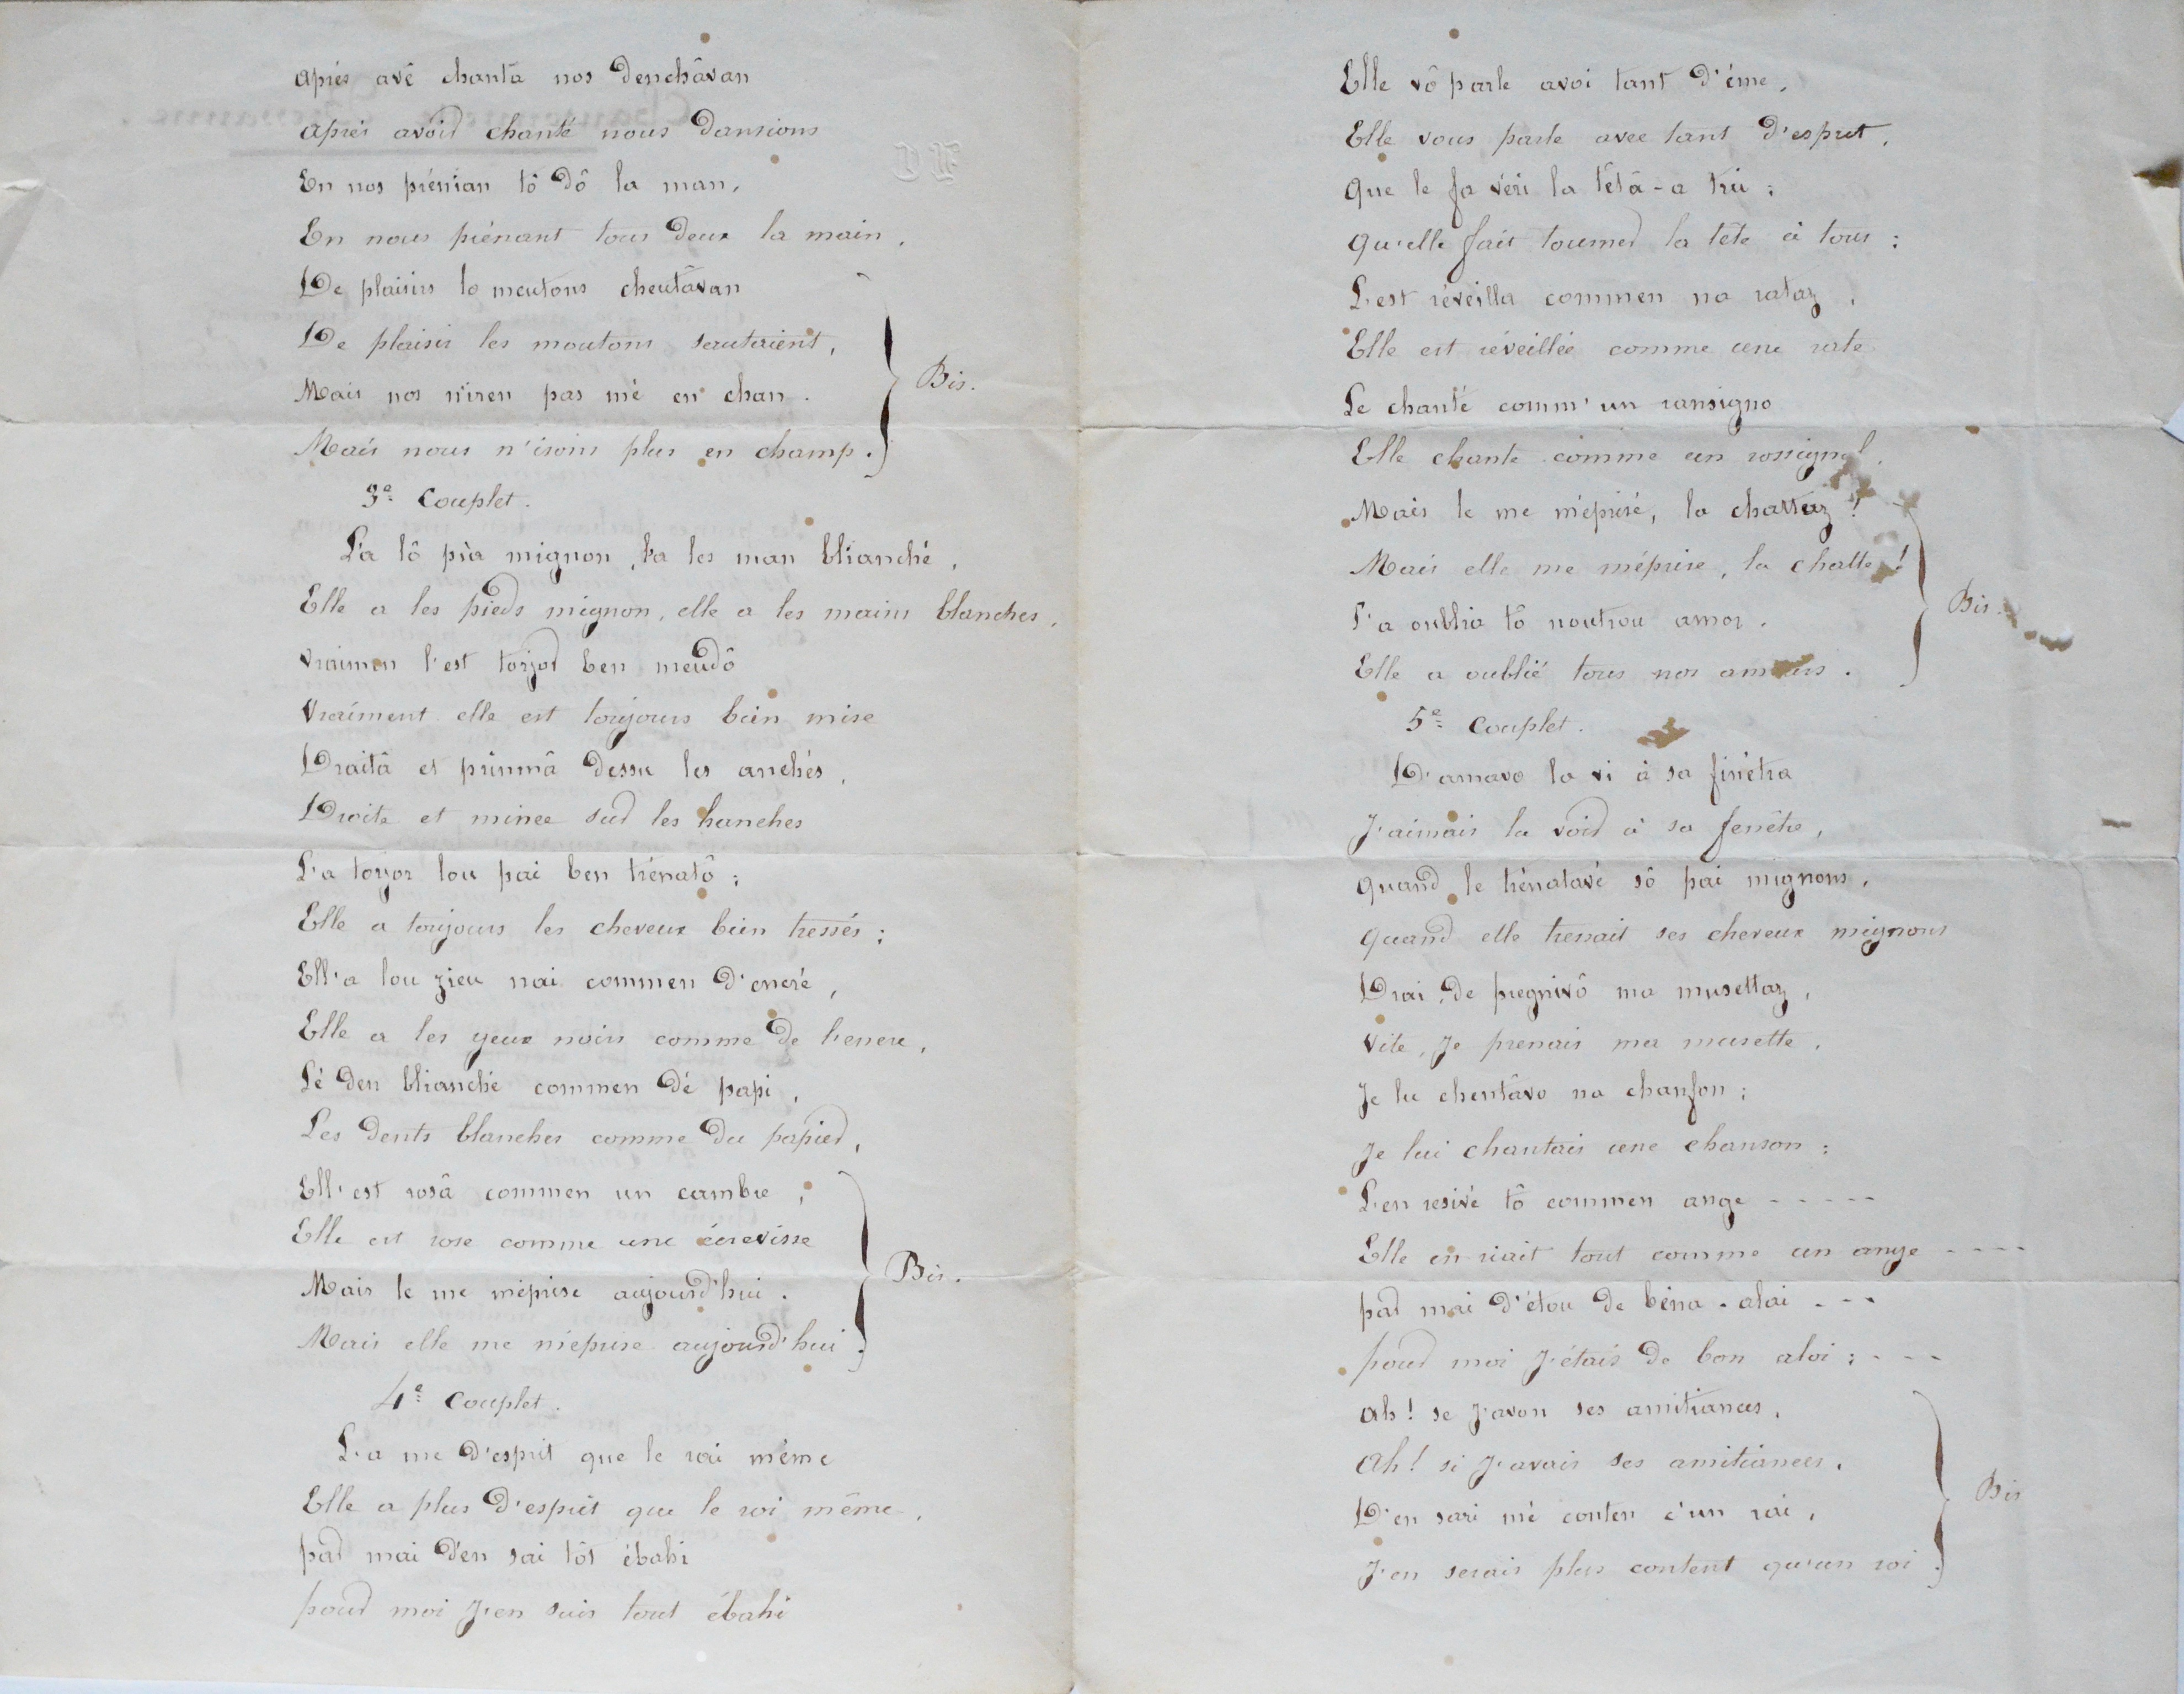 Après avê chantâ nos denchâvan
Après avoir chanté nous dansions
En nos prénian tô dô la man,
En nous prénant tous deux la main,
De plaisirs lo meutons cheutâvan
De plaisir les moutons sautaient,
Mais nos n'iren pas mé en chan.
Mais nous n'irons plus en champ.
Bis.
3e Couplet.
L'a lô pia mignon, l'a les man blianché,
Elle a les pieds mignon, elle a les mains blanches,
Vraimen l'est torjor ben meudô
Vraiment elle est toujours bien mise
Draitâ et prinmâ dessu les anchés,
Droite et mince sur les hanches
L'a torjor lou pai ben trénatô;
Elle a toujours les cheveux bien tressés;
Ell'a lou zieu nai commen d'encré,
Elle a les yeux noirs comme de l'encre,
Lé den blianché commen dé papi,
Les dents blanches comme du papier,
Ell'est rosâ commen un cambre,
Elle est rose comme une écrevisse
Mais le me méprise aujourd'hui.
Mais elle me méprise aujourd'hui.
Bis.
4e Couplet.
L'a me d'esprit que le rai même
Elle a plus d'esprit que le roi même,
par mai d'en sai tôt ébahi
pour moi j'en suis tout ébahi
Elle vô parle avoi tant d'éme,
Elle vous parle avec tant d'esprit,
Que le fa véri la tétâ-a tui;
Qu'elle fait tourner la tête à tous;
L'est réveilla commen na rataz,
Elle est réveillée comme une rate
Le chanté comm'un ransigno
Elle chante comme un rossignol,
Mais le me méprisé, la chattaz!
Mais elle me méprise, la chatte!
L'a oublia tô noutrou amor.
Elle a oublié tous nos amours.
Bis.
5e Couplet.
D'amavo la vi à sa finétra
J'aimais la voir à sa fenêtre,
Quand le trénatavé sô pai mignons,
Quand elle tressait ses cheveux mignons
Drai, de pregnivô ma musettaz,
Vite, je prenais ma musette,
Je lu chentâvo na chanson;
Je lui chantais une chanson;
L'en resivé tô commen ange - - - - -
Elle en riait tout comme un ange - - - -
par mai d'étou de béna-alai - - -
pour moi j'étais de bon aloi; - - -
Ah! se j'avon ses amitiances,
Ah! si j'avais ses amitiances,
D'en sari mé conten c'un rai,
J'en serais plus content qu'un roi.
Bis